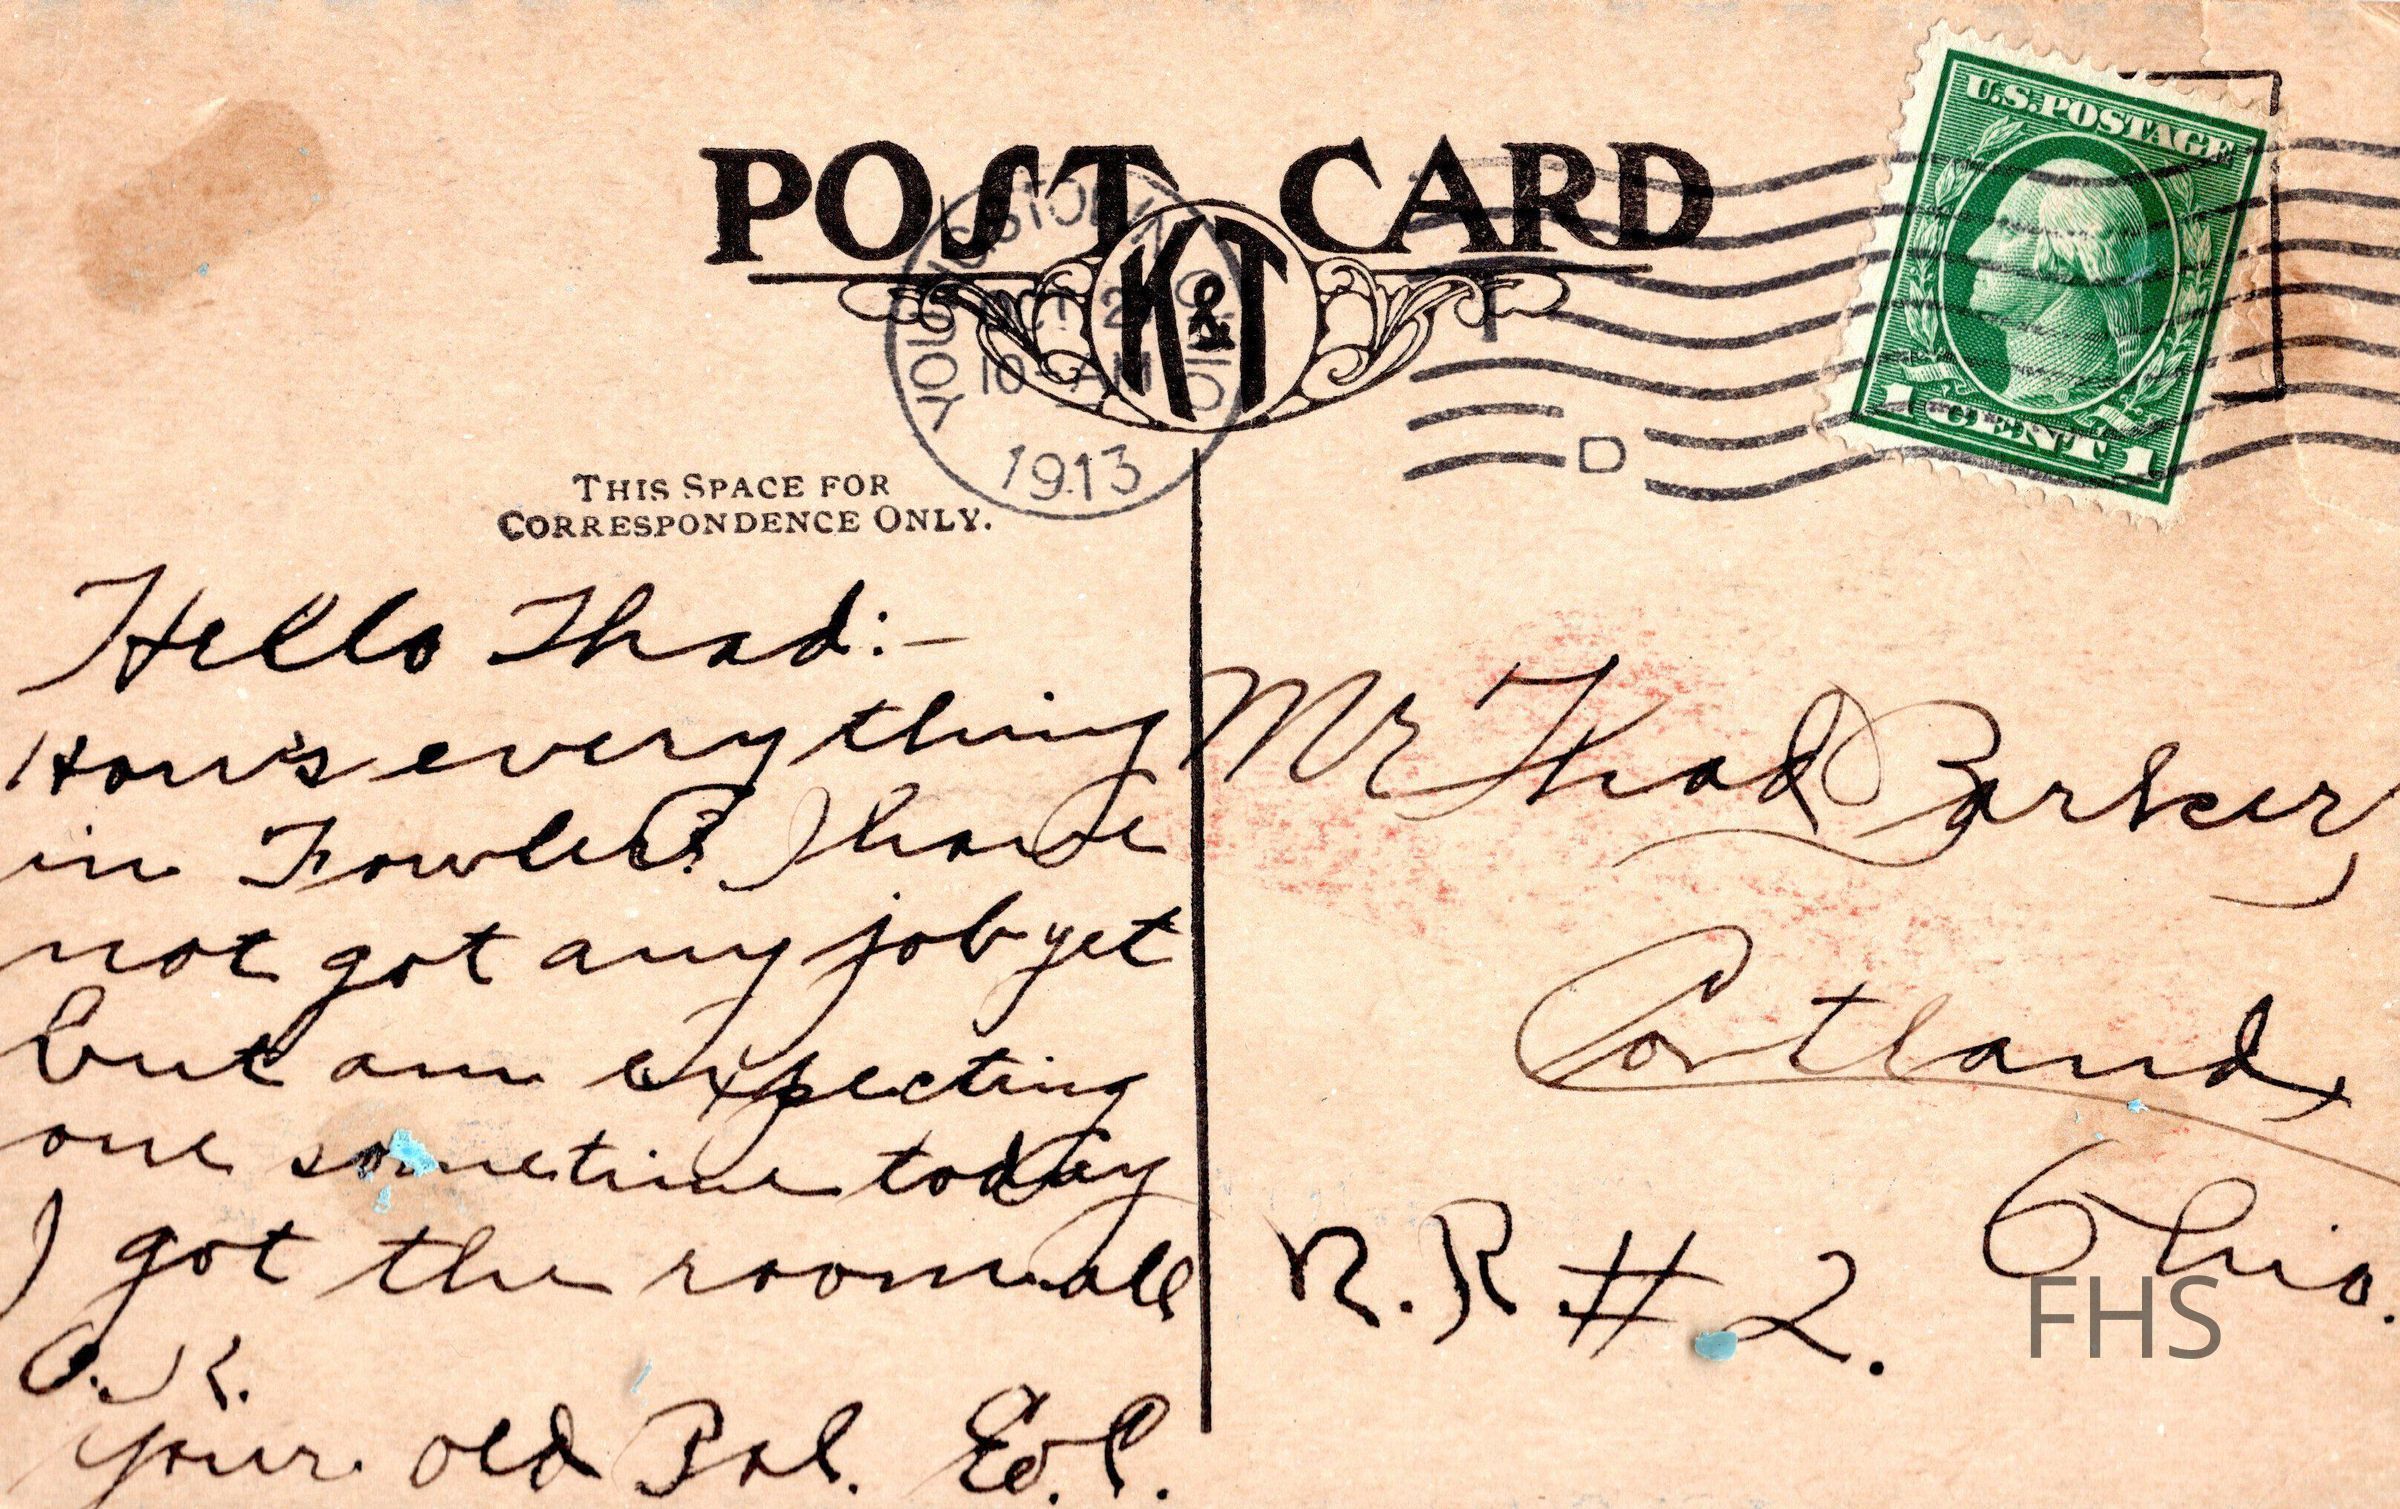 POST CARD
K&T
U.S. POSTAGE
1 CENT 1
YOUNGSTOWN OHIO
OCT 2
10-AM
1913
D
THIS SPACE FOR
CORRESPONDENCE ONLY.
Hello Thad:-
How's everything
in Fowler? I have
not got any job yet
but am expecting
one sometime today
I got the room all
O.K.
Your old Pal. Ed. P.
Mr Thad Barker,
Cortland,
Ohio.
R.R # 2.
FHS